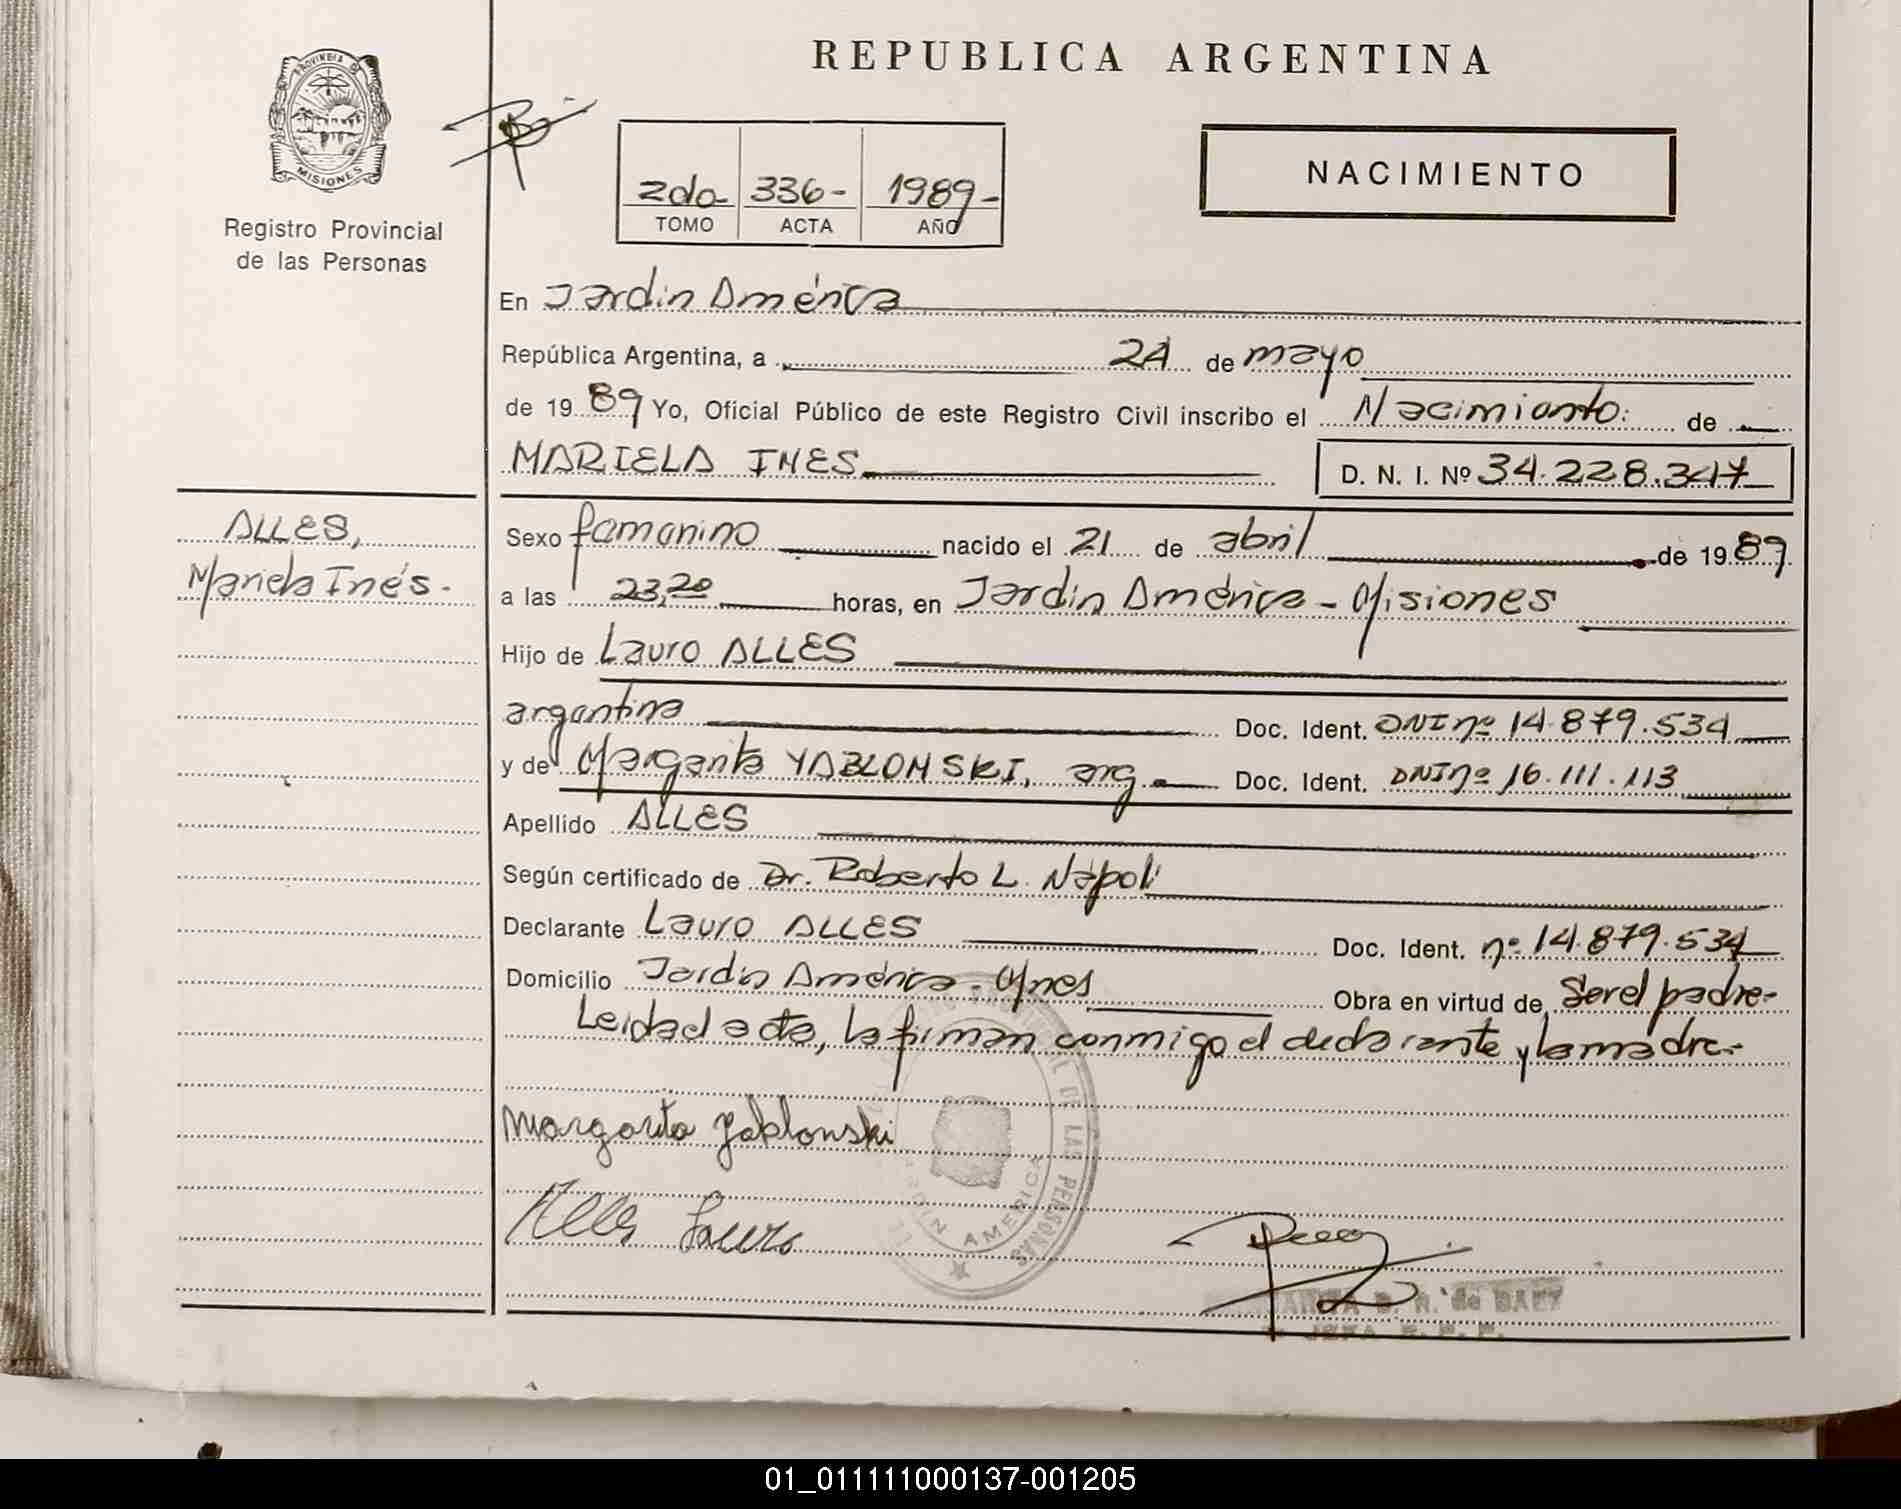 REPUBLICA ARGENTINA
PROVINCIA DE
MISIONES
Registro Provincial
de las Personas
2do 336- 1989-
TOMO ACTA AÑO
NACIMIENTO
En Jardin América
República Argentina, a 24 de mayo
de 1989 Yo, Oficial Público de este Registro Civil inscribo el Nacimiento: de
MARIELA INES D. N. I. Nº 34.228.347
ALLES,
Mariela Inés.-
Sexo femenino nacido el 21 de abril de 1989
a las 23,20 horas, en Jardin América - Misiones
Hijo de Lauro ALLES
argentina Doc. Ident. DNI nº 14.879.534
y de Margarita YABLONSKI, arg. Doc. Ident. DNI nº 16.111.113
Apellido ALLES
Según certificado de Dr. Roberto L. Nápoli
Declarante Lauro ALLES Doc. Ident. nº 14.879.534
Domicilio Jardin América - Mnes Obra en virtud de Ser el padre-
Leida el acta, la firman conmigo el declarante y la madre.-
Margarita Yablonski
Alles Lauro
DE LAS PERSONAS
JARDIN AMERICA
D. R. de BAEZ
JEFA R. P. P.
01_011111000137-001205